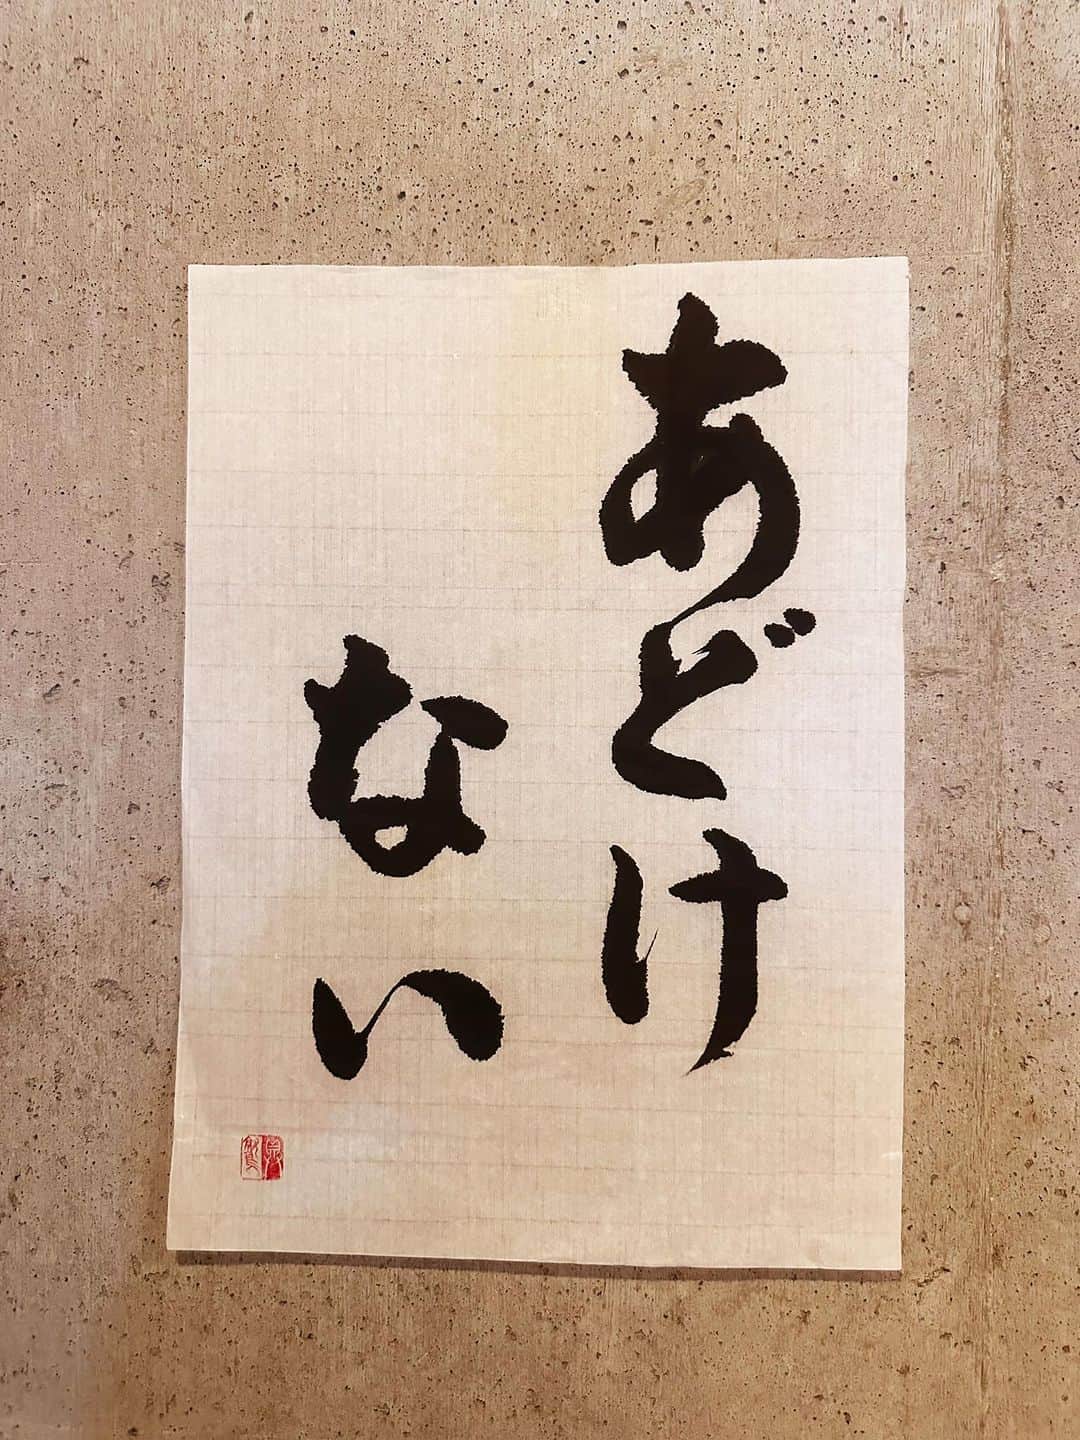 あどけ
ない